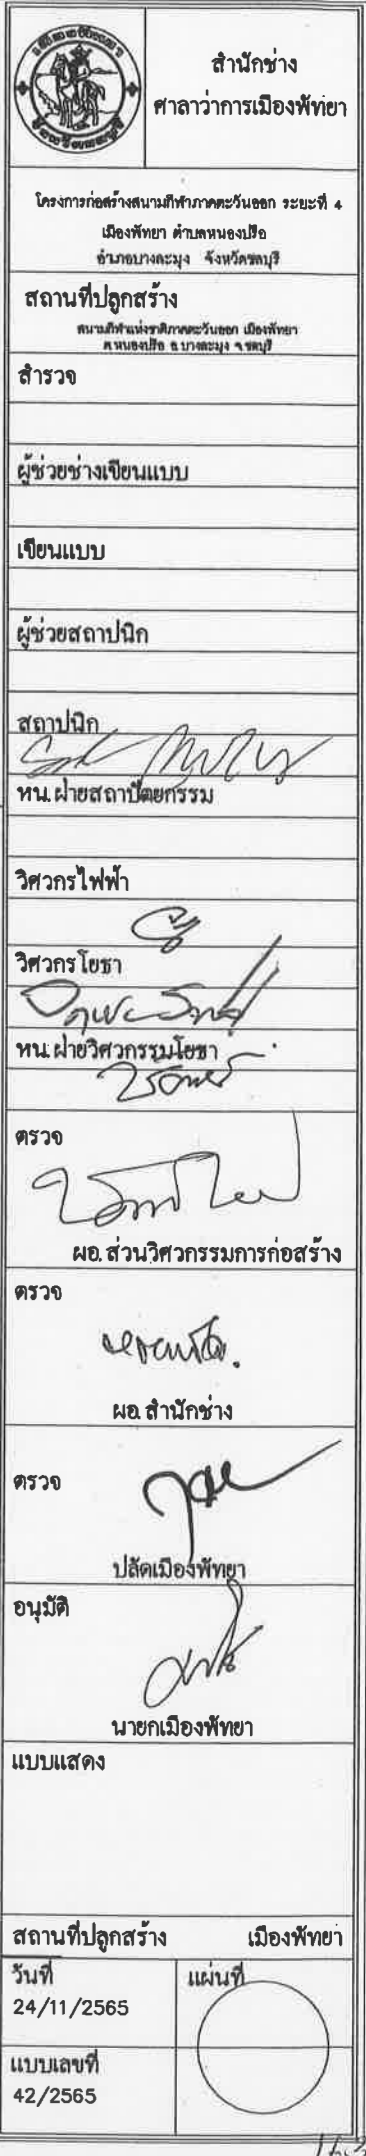 สำนักช่าง
ศาลาว่าการเมืองพัทยา
โครงการก่อสร้างสนามกีฬาภาคตะวันออก ระยะที่ 4
เมืองพัทยา ตำบลหนองปรือ
อำเภอบางละมุง จังหวัดชลบุรี
สถานที่ปลูกสร้าง
สนามกีฬาแห่งชาติภาคตะวันออก เมืองพัทยา
ต.หนองปรือ อ.บางละมุง จ.ชลบุรี
สำรวจ
ผู้ช่วยช่างเขียนแบบ
เขียนแบบ
ผู้ช่วยสถาปนิก
สถาปนิก
หน.ฝ่ายสถาปัตยกรรม
วิศวกรไฟฟ้า
วิศวกรโยธา
หน.ฝ่ายวิศวกรรมโยธา
ตรวจ
ผอ.ส่วนวิศวกรรมการก่อสร้าง
ตรวจ
ผอ.สำนักช่าง
ตรวจ
ปลัดเมืองพัทยา
อนุมัติ
นายกเมืองพัทยา
แบบแสดง
สถานที่ปลูกสร้าง เมืองพัทยา
วันที่ แผ่นที่
24/11/2565
แบบเลขที่
42/2565